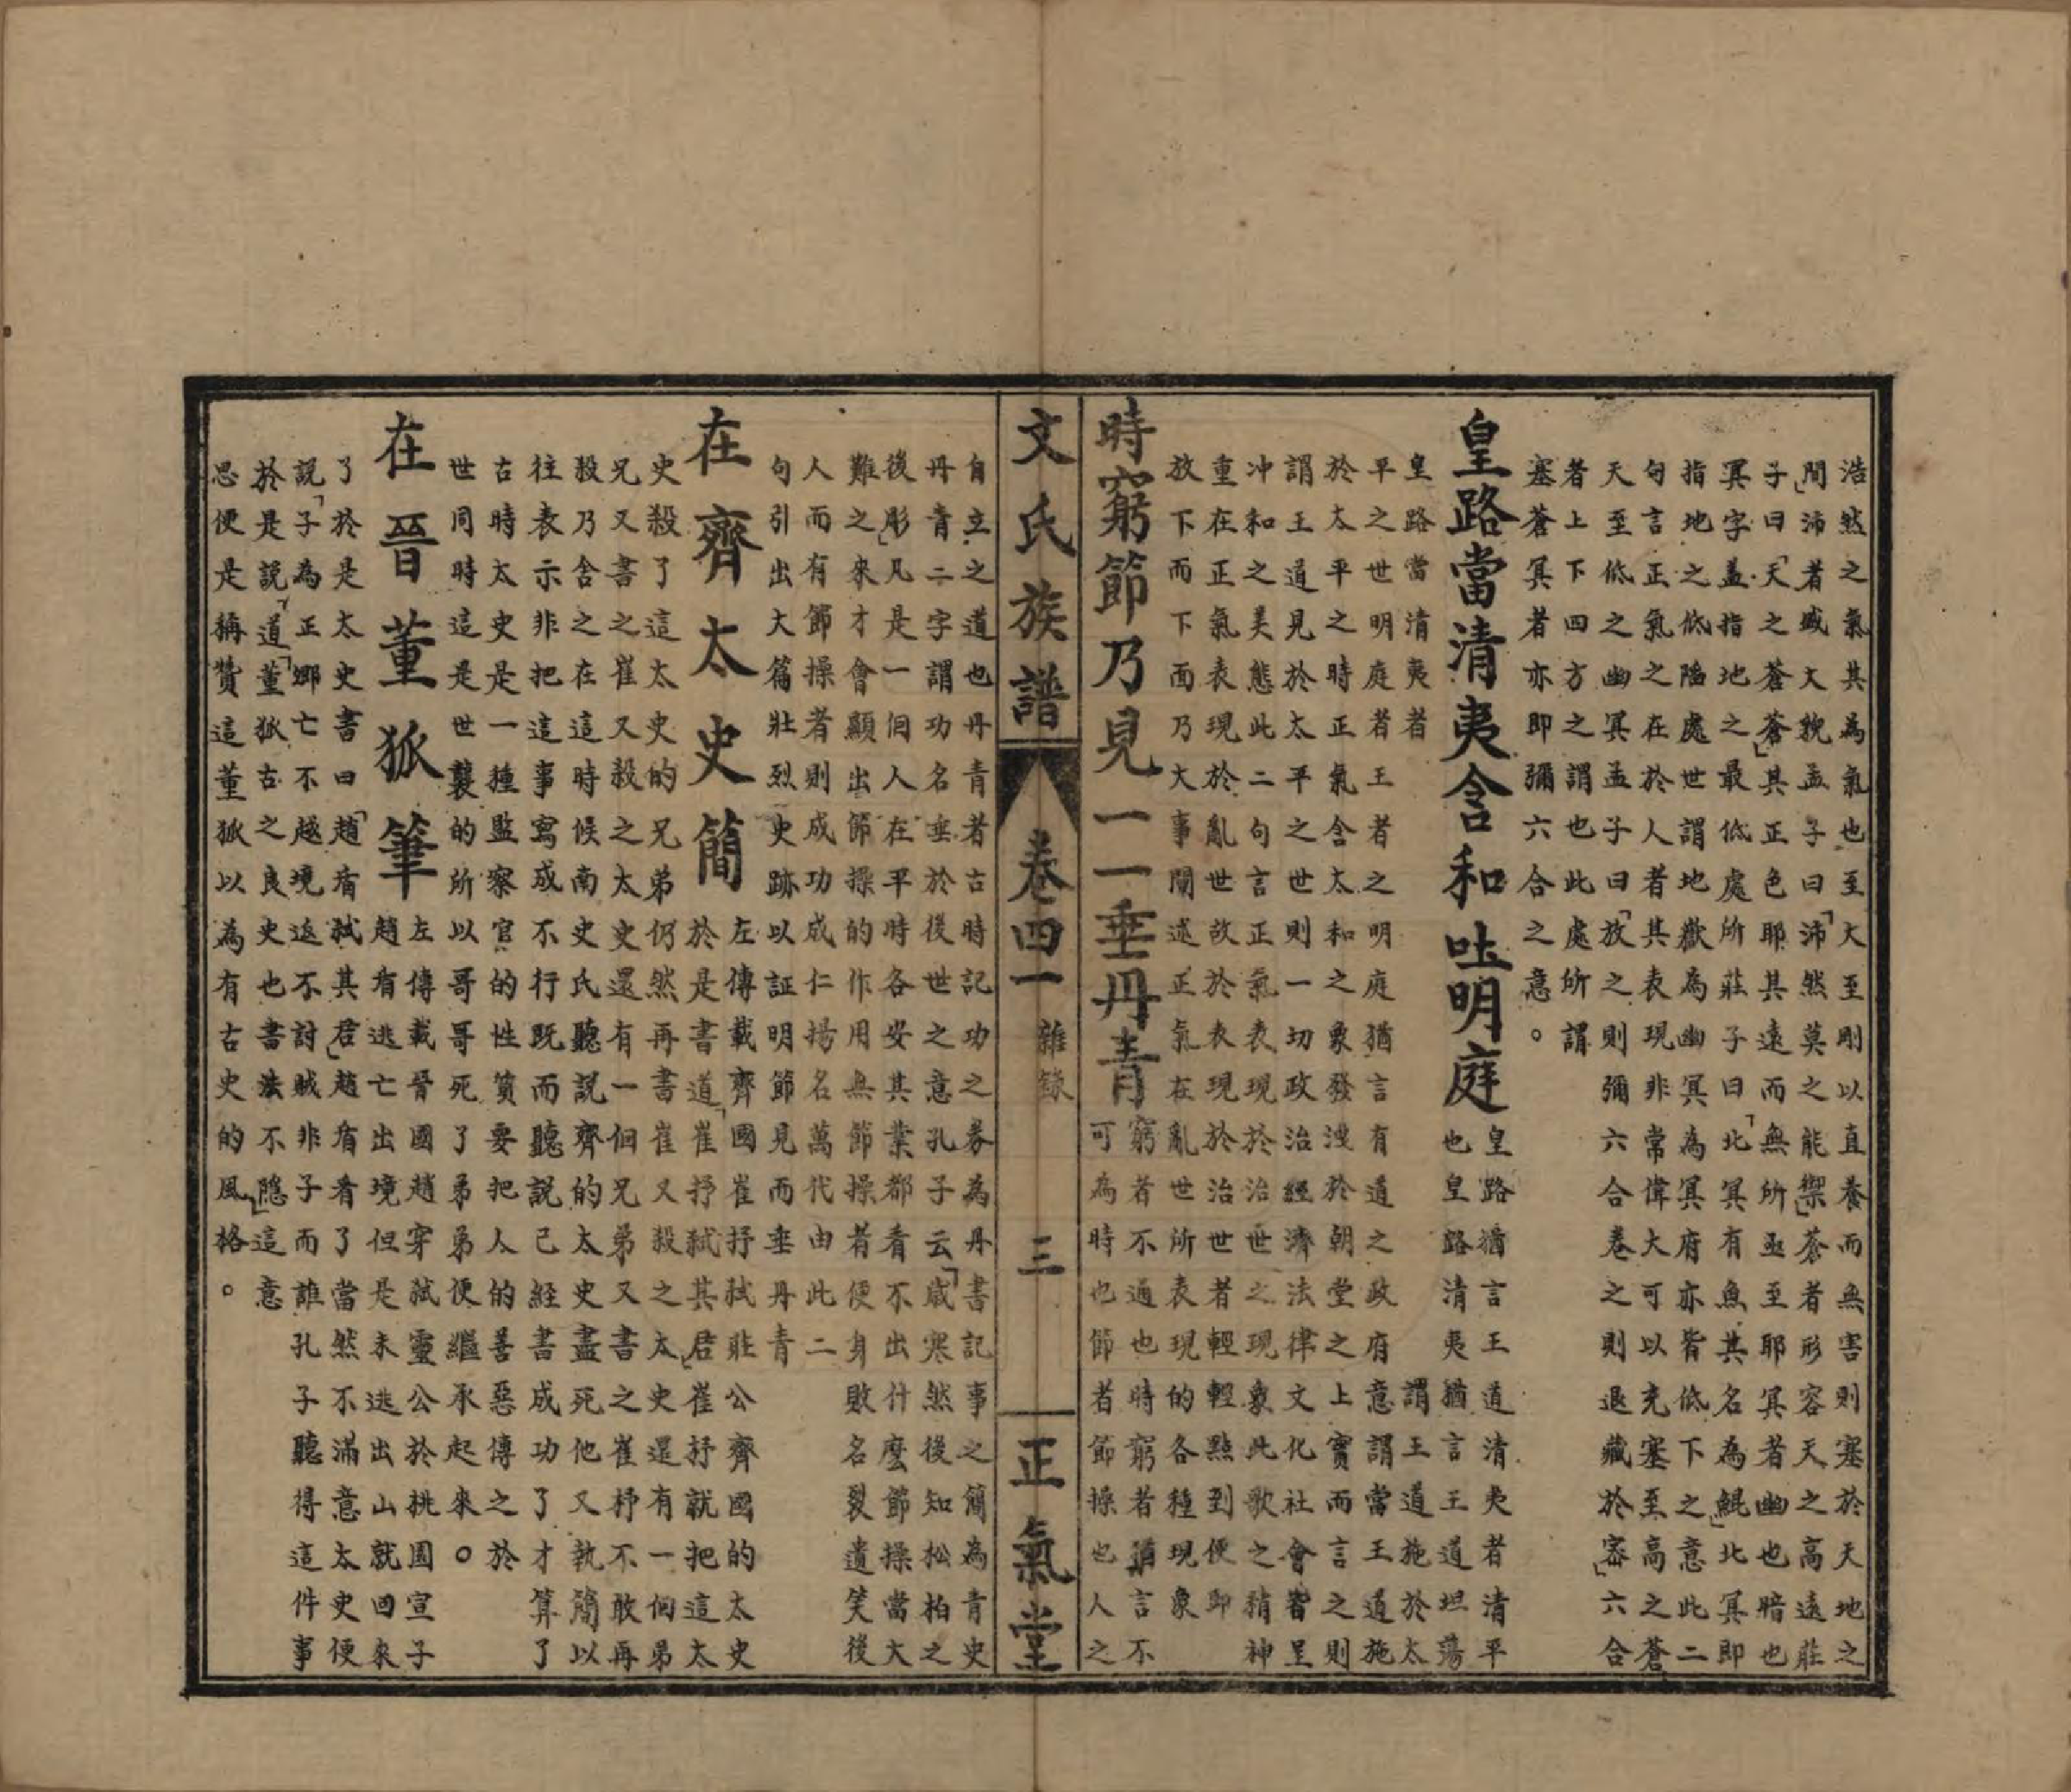 浩然之氣其為氣也至大至剛以直養而無害則塞於天地之
間沛者盛大貌孟子曰「沛然莫之能禦」蒼者形容天之高遠莊
子曰「天之蒼蒼」其正色耶其遠而無所至耶冥者幽也暗也
冥字盖指地之最低處所莊子曰「北冥有魚其名為鯤」北冥即
指地之低陷處世謂地獄為幽冥為冥府亦皆低下之意此二
句言正氣之在於人者其表現非常偉大可以充塞至高之蒼
天至低之幽冥孟子曰「放之則彌六合卷之則退藏於密」六合
者上下四方之謂也此處所謂
塞蒼冥者亦即彌六合之意。
皇路當清夷含和吐明庭皇路猶言王道清夷者清平
也皇路清夷猶言王道坦蕩
皇路當清夷者謂王道施於太
平之世明庭者王者之明庭猶言有道之政府意謂當王道施
於太平之時正氣含太和之象發洩於朝堂之上實而言之則
謂王道見於太平之世則一切政治經濟法律文化社會皆呈
冲和之美態此二句言正氣表現於治世之現象此歌之精神
重在正氣表現於亂世故於表現於治世者輕輕點到便卸
放下而下面乃大事闡述正氣在亂世所表現的各種現象
時窮節乃見一一垂丹青窮者不通也時窮者猶言不
可為時也節者節操也人之
自立之道也丹青者古時記功之券為丹書記事之簡為青史
丹青二字謂功名垂於後世之意孔子云「歲寒然後知松柏之
後彫」凡是一個人在平時各安其業都看不出什麽節操當大
難之來才會顯出節操的作用無節操者便身敗名裂遺笑後
人而有節操者則成功成仁揚名萬代由此二
句引出大篇壯烈史跡以証明節見而垂丹青
在齊太史簡左傳載齊國崔抒弒莊公齊國的太史
於是書道「崔抒弒其君」崔抒就把這太
史殺了這太史的兄弟仍然再書崔又殺之太史還有一個弟
兄又書之崔又殺之太史還有一個兄弟又書之崔抒不敢再
殺乃舍之在這時候南史氏聽説齊的太史盡死他又執簡以
往表示非把這事寫成不行既而聽説已經書成功了才算了
古時太史是一種監察官的性質要把人的善惡傳之於
世同時這是世襲的所以哥哥死了弟弟便繼承起來。
在晉董狐筆左傳載晉國趙穿弒靈公於桃園宣子
趙盾逃亡出境但是未逃出山就回來
了於是太史書曰「趙盾弒其君」趙盾看了當然不滿意太史便
説「子為正卿亡不越境返不討賊非子而誰孔子聽得這件事
於是説「道」董狐古之良史也書法不隱」這意
思便是稱贊這董狐以為有古史的風格。
文氏族譜
卷四一
雜錄
三
正氣堂